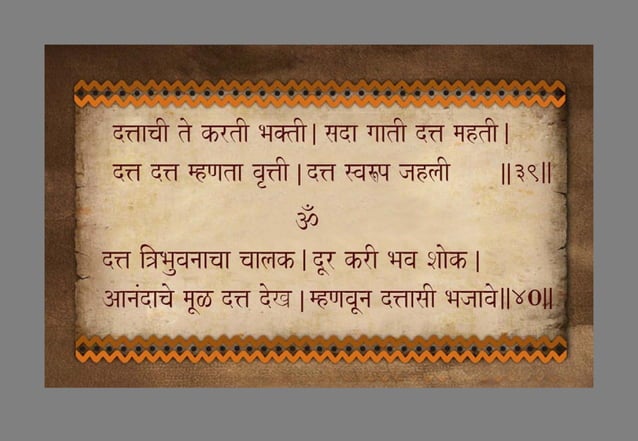 दत्ताची ते करती भक्ती | सदा गाती दत्त महती |
दत्त दत्त म्हणता वृत्ती | दत्त स्वरूप जहली ||३९||
ॐ
दत्त त्रिभुवनाचा चालक | दूर करी भव शोक |
आनंदाचे मूळ दत्त देख | म्हणवून दत्तासी भजावे||४०||